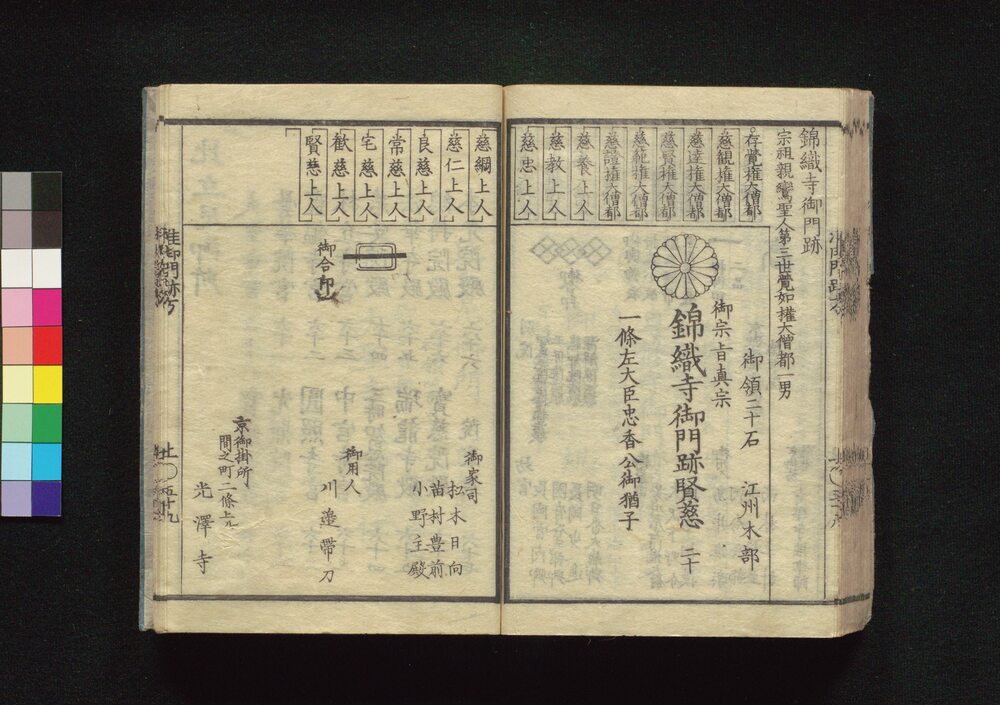 錦織寺御門跡
宗祖親鸞聖人第三世覺如權大僧都一男
存覺權大僧都
慈觀權大僧都
慈達權大僧都
慈賢權大僧都
慈範權大僧都
慈證權大僧都
慈養上人
慈教上人
慈忠上人
御領二十石
江州木部
御宗旨真宗
錦織寺御門跡賢慈
二十
一條左大臣忠香公御猶子
慈綱上人
慈仁上人
良慈上人
常慈上人
宅慈上人
歓慈上人
賢慈上人
御合印
御家司
松木日向
苗村豊前
小野主殿
御用人
川邉帯刀
京御掛所
間之町二條上ル
光澤寺
准御門跡方
上
五十九